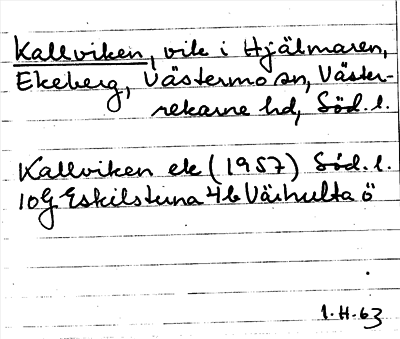 Kallviken, vik i Hjälmaren,
Ekeberg, Västermo sn, Väster-
rekarne hd, Söd. l.
Kallviken ek (1957) Söd. l.
10G Eskilstuna 4b Väihulta ö
1.H.63